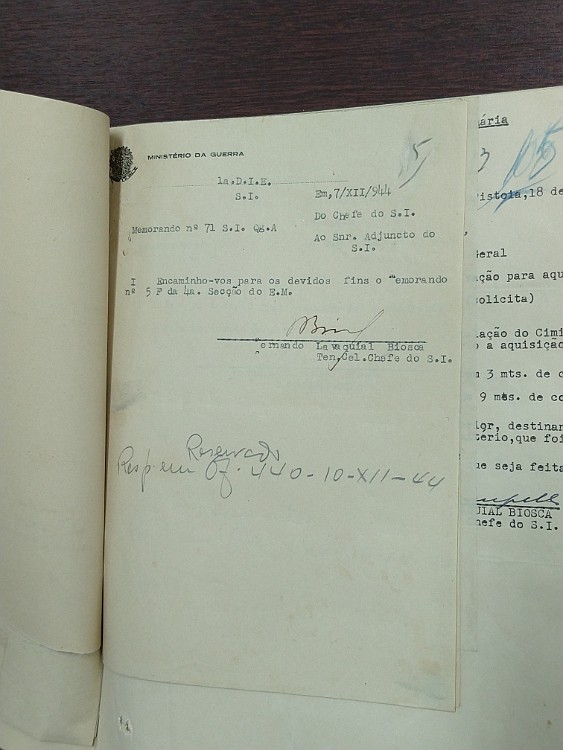 MINISTÉRIO DA GUERRA
1a.D.I.E.
S.I.
Em, 7/XII/944
Do Chefe do S.I.
Memorando nº 71 S.I. Qg.A
Ao Snr. Adjuncto do
S.I.
I Encaminho-vos para os devidos fins o "emorando
nº 5 F da 4a. Secção do E.M.
ernando Lavaquial Biosca
Ten,Cel.Chefe do S.I.
Reservado
Resp em Of. 440-10-XII-44
5
ária
3
istoia,18 de
Geral
ção para aqu
olicita)
ação do Cimi
a aquisição
3 mts. de c
9 mes. de co
lor, destinar
tério,que foi
ue seja feita
UIAL BIOSCA
hefe do S.I.